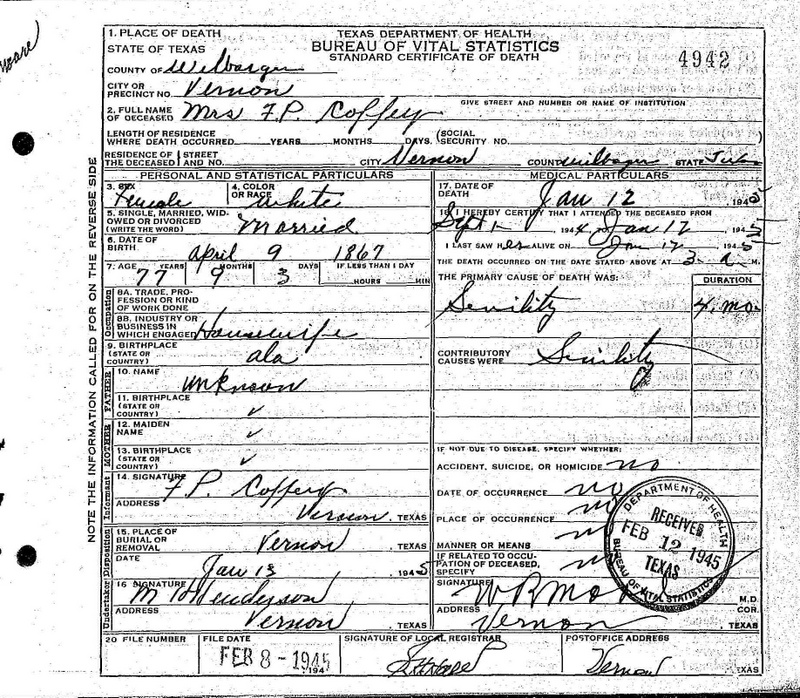 1. PLACE OF DEATH
STATE OF TEXAS
COUNTY OF Wilbarger
CITY OR
PRECINCT NO. Vernon
TEXAS DEPARTMENT OF HEALTH
BUREAU OF VITAL STATISTICS
STANDARD CERTIFICATE OF DEATH
4942
GIVE STREET AND NUMBER OR NAME OF INSTITUTION
2. FULL NAME
OF DECEASED Mrs F.P. Coffey
LENGTH OF RESIDENCE
WHERE DEATH OCCURRED YEARS MONTHS DAYS. (SOCIAL
SECURITY NO.
RESIDENCE OF { STREET
THE DECEASED { AND NO. CITY Vernon COUNTY Wilbarger STATE Texas
NOTE THE INFORMATION CALLED FOR ON THE REVERSE SIDE
PERSONAL AND STATISTICAL PARTICULARS
3. SEX Female
4. COLOR
OR RACE White
5. SINGLE, MARRIED, WID-
OWED OR DIVORCED
(WRITE THE WORD) Married
6. DATE OF
BIRTH April 9 1867
7. AGE 77 YEARS 9 MONTHS 3 DAYS IF LESS THAN 1 DAY
HOURS MIN
Occupation
8A. TRADE, PRO-
FESSION OR KIND
OF WORK DONE
8B. INDUSTRY OR
BUSINESS IN
WHICH ENGAGED Housewife
9. BIRTHPLACE
(STATE OR
COUNTRY) ala
FATHER
10. NAME unknown
11. BIRTHPLACE
(STATE OR
COUNTRY) ✓
MOTHER
12. MAIDEN
NAME ✓
13. BIRTHPLACE
(STATE OR
COUNTRY) ✓
Informant
14. SIGNATURE F.P. Coffey
ADDRESS Vernon, TEXAS
Disposition
15. PLACE OF
BURIAL OR
REMOVAL Vernon
DATE Jan 13 1945
Undertaker
16 SIGNATURE Henderson
ADDRESS Vernon, TEXAS
MEDICAL PARTICULARS
17. DATE OF
DEATH Jan 12 1945
18 I HEREBY CERTIFY THAT I ATTENDED THE DECEASED FROM
Sept 1 1944 TO Jan 12 1945
I LAST SAW HER ALIVE ON Jan 12 1945
THE DEATH OCCURRED ON THE DATE STATED ABOVE AT 3 a. M.
THE PRIMARY CAUSE OF DEATH WAS: DURATION
Senility 4. mo
CONTRIBUTORY
CAUSES WERE Senility
IF NOT DUE TO DISEASE, SPECIFY WHETHER:
ACCIDENT, SUICIDE, OR HOMICIDE no
DATE OF OCCURRENCE no
PLACE OF OCCURRENCE no
MANNER OR MEANS no
IF RELATED TO OCCU-
PATION OF DECEASED,
SPECIFY no
SIGNATURE M.D.
ADDRESS Vernon COR.
, TEXAS
DEPARTMENT OF HEALTH
RECEIVED
FEB 12 1945
TEXAS
BUREAU OF VITAL STATISTICS
20 FILE NUMBER
FILE DATE
FEB 8 - 1945
, 194
SIGNATURE OF LOCAL REGISTRAR
POSTOFFICE ADDRESS
Vernon TEXAS